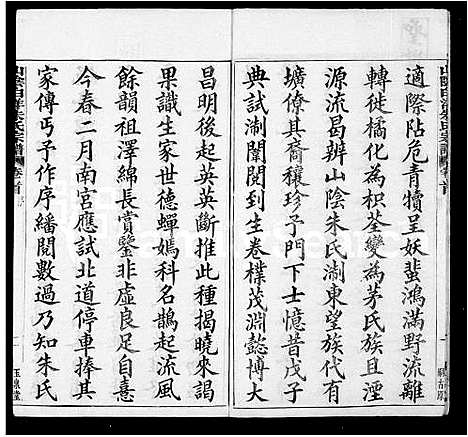 適際阽危青犢呈妖蜚鴻滿野流離
轉徙橘化為枳荃變為茅氏族且湮
源流曷辨山陰朱氏淛東望族代有
壙僚其裔穰珍子門下士憶昔戊子
典試淛闈閱到生卷樸茂淵懿博大
昌明後起英英斷推此種揭曉來謁
果識生家世德蟬嫣科名鵲起流風
餘韻祖澤綿長賞鑒非虛良足自喜
今春二月南宮應試北道停車捧其
家傳丐予作序繙閱數過乃知朱氏
山陰白洋朱氏宗譜 卷首
玉泉堂